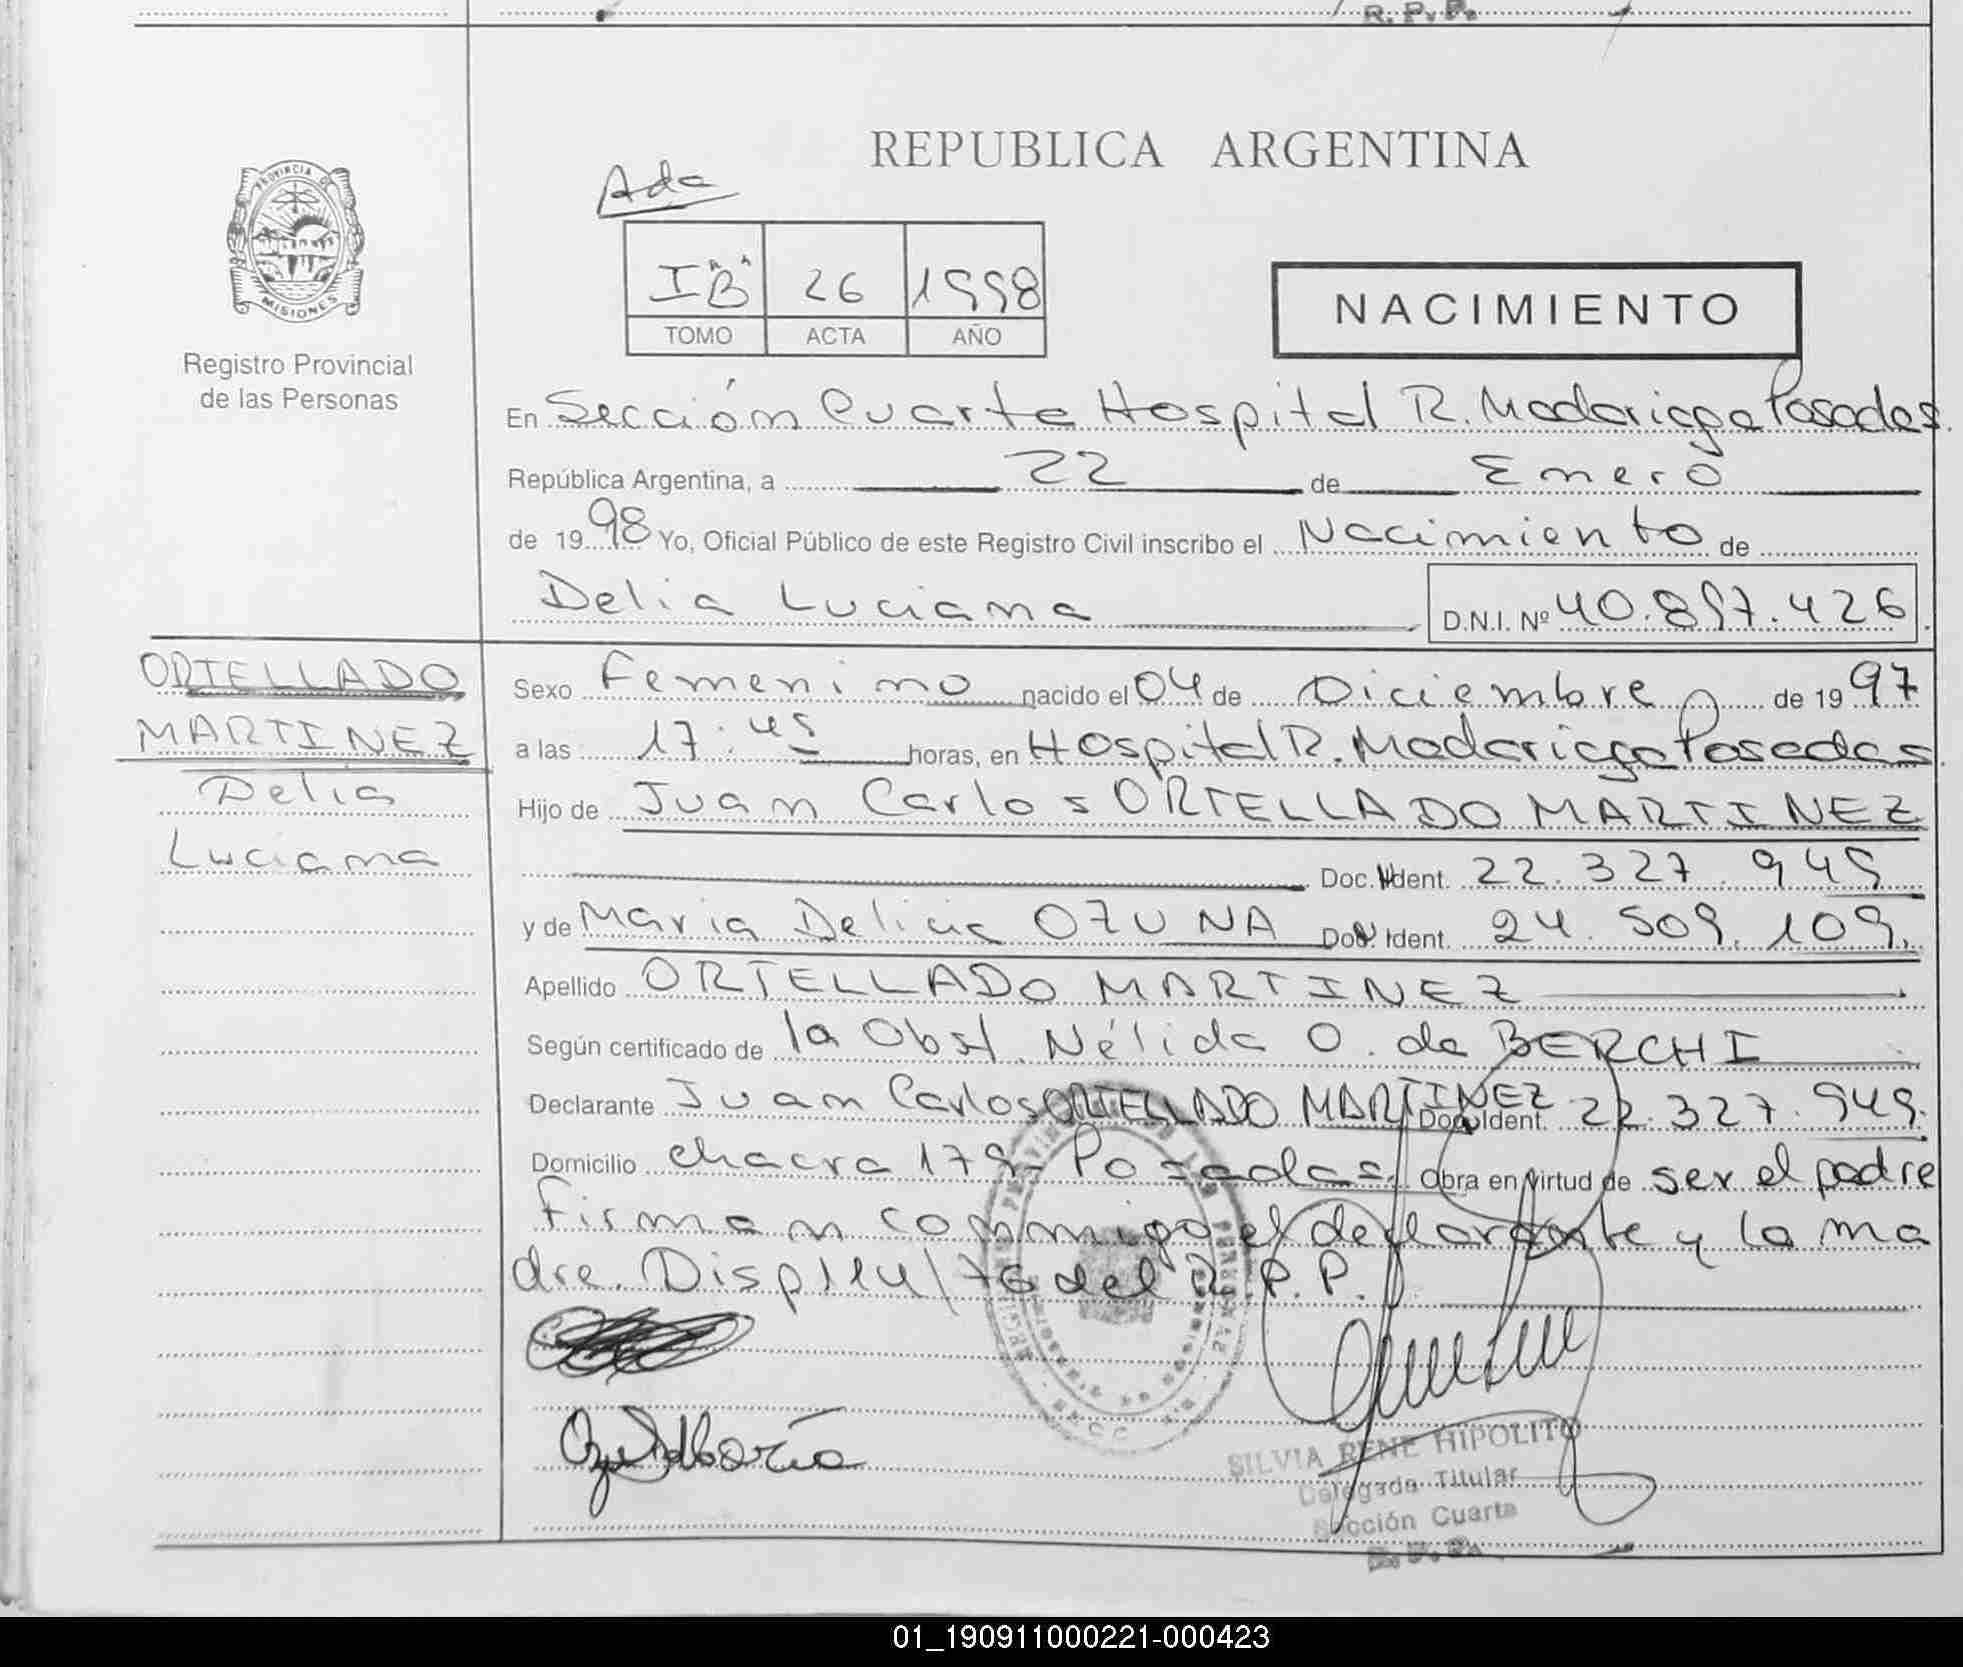 R. P. P.
REPUBLICA ARGENTINA
PROVINCIA DE
MISIONES
Registro Provincial
de las Personas
Ada
I "B" 26 1998
TOMO ACTA AÑO
NACIMIENTO
En Sección Cuarta Hospital R. Madariaga Posadas.
República Argentina, a 22 de Enero
de 1998 Yo, Oficial Público de este Registro Civil inscribo el Nacimiento de
Delia Luciana D.N.I. Nº 40.897.426
ORTELLADO
MARTINEZ
Delia
Luciana
Sexo Femenino nacido el 04 de Diciembre de 1997
a las 17:45 horas, en Hospital R. Madariaga Posadas.
Hijo de Juan Carlos ORTELLADO MARTINEZ
Doc. Ident. 22.327.949
y de Maria Delicia OZUNA Doc. Ident. 24.509.109.
Apellido ORTELLADO MARTINEZ
Según certificado de la Obst. Nélida O. de BERCHI
Declarante Juan Carlos ORTELLADO MARTINEZ Doc. Ident. 22.327.949.
Domicilio chacra 179- Posadas. Obra en virtud de ser el padre
Firman conmigo el declarante y la ma
dre. Disp 114/76 del R.P.P.
SILVIA RENE HIPOLITO
Delegada Titular
Sección Cuarta
R. P. P.
01_190911000221-000423